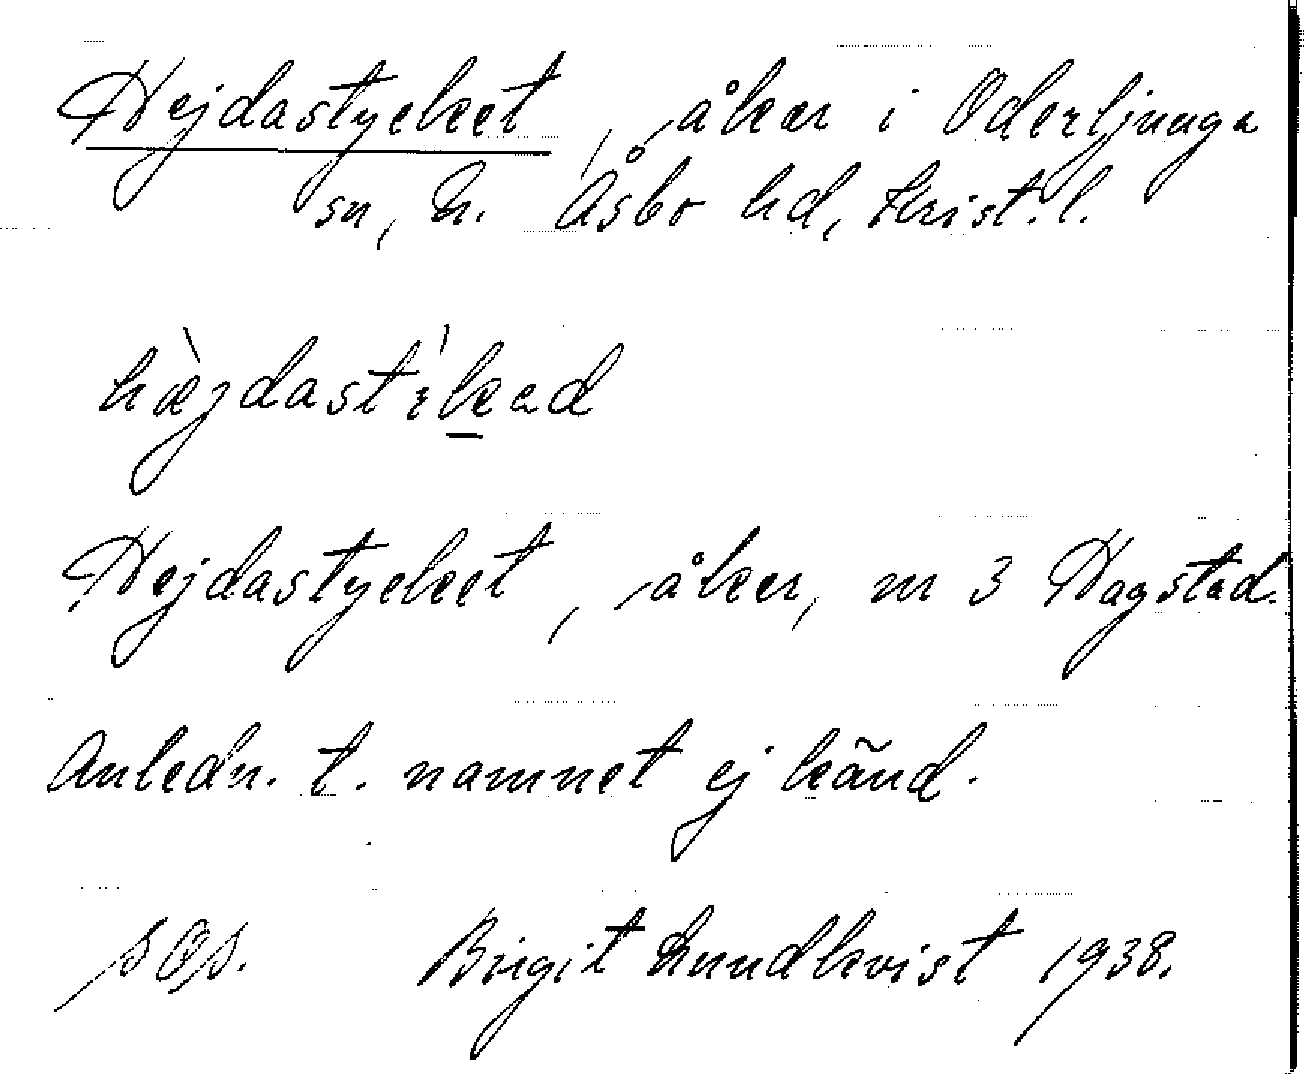 Hejdastycket, åker i Oderljunga
sn, n. Åsbo hd, Krist. l.
hæ̀jdastɪ́kəd
Hejdastycket, åker, m 3 Hagstad.
Anledn. t. namnet ej känd.
Birgit Lundkvist 1938.